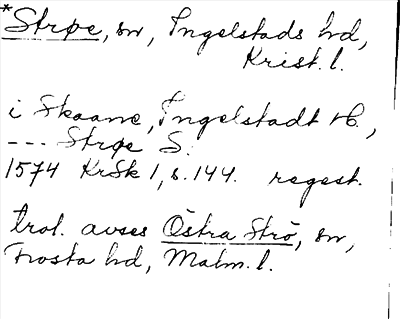 *Strøe, sn, Ingelstads hd,
Krist. l.
i Skaane, Ingelstadt H.,
--- Strøe S.
1574 KrSk 1, s. 144. regest.
trol. avses Östra Strö, sn,
Frosta hd, Malm. l.